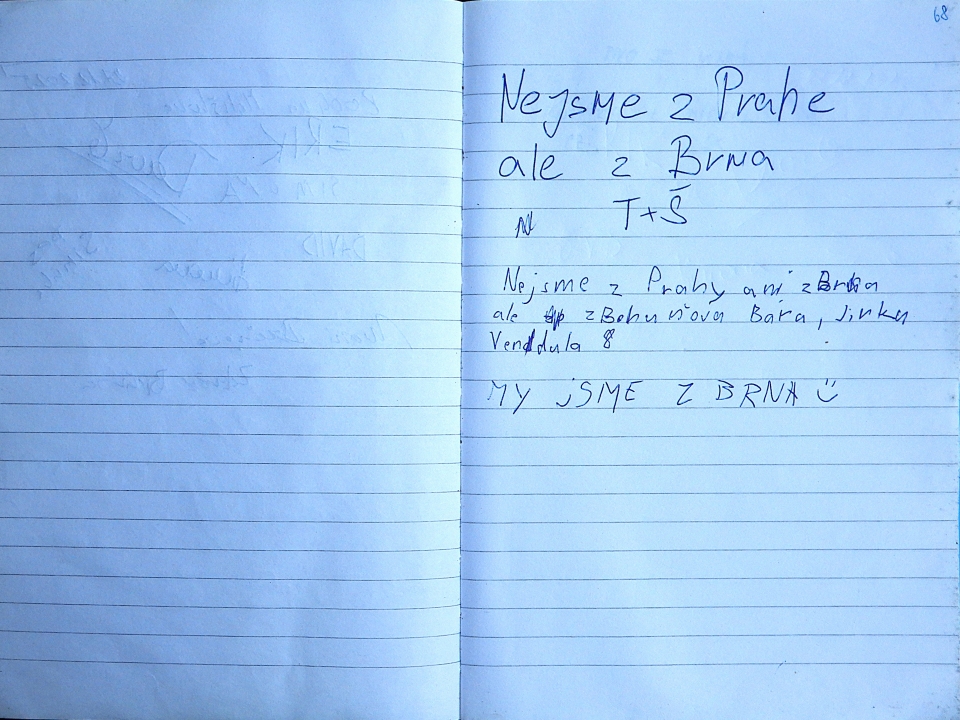 68
Nejsme z Prahe
ale z Brna
T+Š
Nejsme z Prahy ani z Brna
ale z Bohuňova Bára, Jirka
Vendula 8
MY jSME Z BRNA